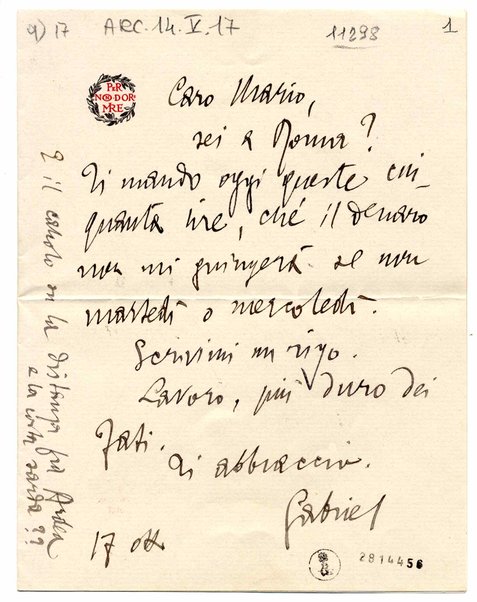 9) 17 ARC. 14. V. 17 11298 1
PER
NON DOR
MIRE
Caro Mario,
sei a Roma?
Ti mando oggi queste cin-
quanta lire, ché il denaro
non mi giungerà se non
martedì o mercoledì.
Scrivimi un rigo.
Lavoro, più duro dei
Fati.
Ti abbraccio.
Gabriel
17 ott
E il su la distanza fra Ardea
e la costa sarda??
2814456